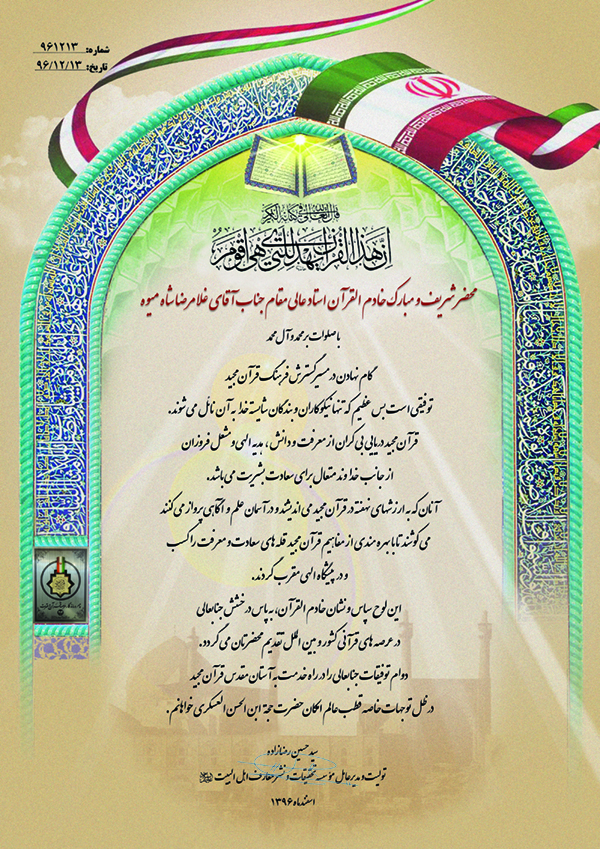 شماره: ۹۶۱۲۱۳
تاریخ: ۹۶/۱۲/۱۳
اِنَّ هذَا القُرآنَ یَهدی لِلَّتی هِیَ اَقوَمُ
محضر شریف و مبارک خادم القرآن استاد عالی مقام جناب آقای غلامرضا شاه میوه
با صلوات بر محمد و آل محمد
گام نهادن در مسیر گسترش فرهنگ قرآن مجید
توفیقی است بس عظیم که تنها نیکوکاران و بندگان شایسته خدا به آن نائل می شوند.
قرآن مجید دریایی بی کران از معرفت و دانش، هدیه الهی و مشعل فروزان
از جانب خداوند متعال برای سعادت بشریت می باشد.
آنان که به ارزشهای نهفته در قرآن مجید می اندیشند و در آسمان علم و آگاهی پرواز می کنند
می کوشند تا با بهره مندی از مفاهیم قرآن مجید قله های سعادت و معرفت را کسب
و در پیشگاه الهی مقرب گردند.
این لوح سپاس و نشان خادم القرآن، به پاس درخشش جنابعالی
در عرصه های قرآنی کشور و بین الملل تقدیم محضرتان می گردد.
دوام توفیقات جنابعالی را در راه خدمت به آستان مقدس قرآن مجید
در ظل توجهات خاصه قطب عالم امکان حضرت حجة ابن الحسن العسکری خواهانم.
سید حسین رضازاده
تولیت و مدیرعامل مؤسسه تحقیقات و نشر معارف اهل البیت
اسفندماه ۱۳۹۶